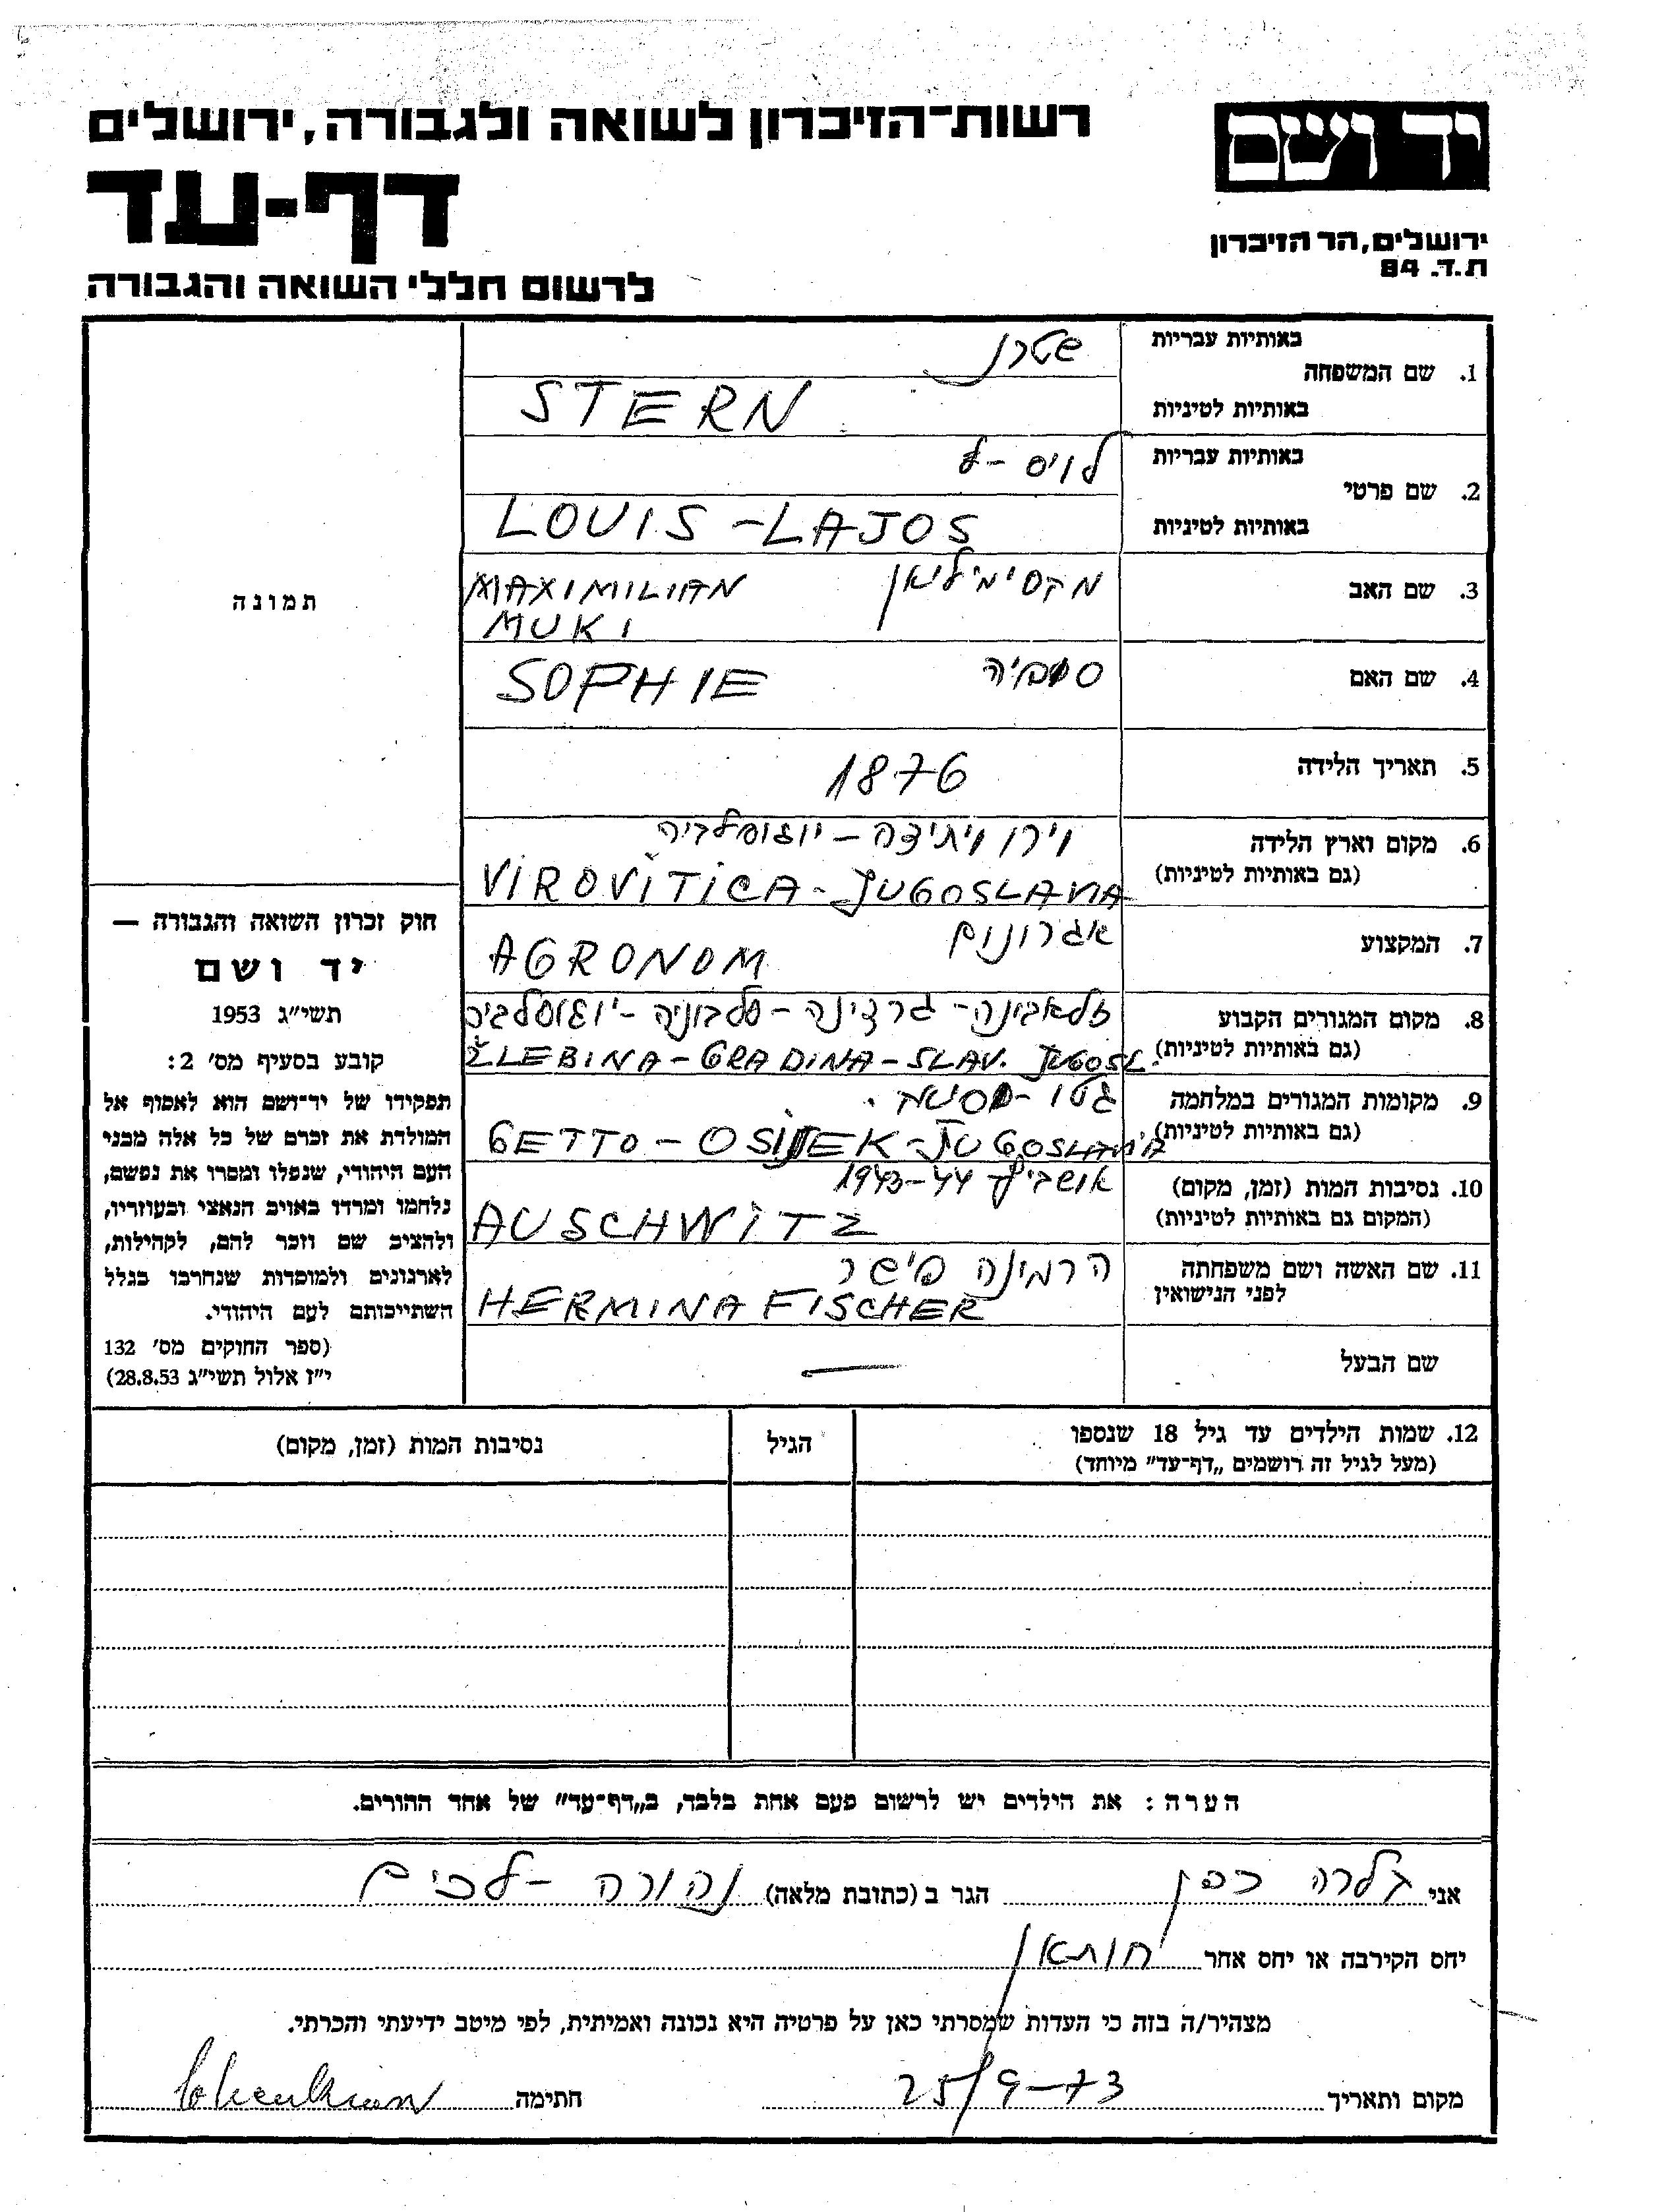 רשות־הזיכרון לשואה ולגבורה, ירושלים
יד ושם
דף-עד
ירושלים, הר הזיכרון
ת.ד. 84
לרשום חללי השואה והגבורה
באותיות עבריות
שטרן
1. שם המשפחה
באותיות לטיניות
STERN
באותיות עבריות
לויס - ל
2. שם פרטי
באותיות לטיניות
LOUIS - LAJOS
3. שם האב
מקסימיליאן MAXIMILIAN
MUKI
4. שם האם
סופיה SOPHIE
5. תאריך הלידה
1876
6. מקום וארץ הלידה
(גם באותיות לטיניות)
וירוויתיצה - יוגוסלביה
VIROVITICA - JUGOSLAVIA
7. המקצוע
אגרונום
AGRONOM
8. מקום המגורים הקבוע
(גם באותיות לטיניות)
סלבוניה - יוגוסלביה
ŽLEBINA - GRADINA - SLAV. JUGOSL.
9. מקומות המגורים במלחמה
(גם באותיות לטיניות)
גטו -
GETTO - OSIJEK - JUGOSLAVIA
10. נסיבות המות (זמן, מקום)
(המקום גם באותיות לטיניות)
אושביץ 1943-44
AUSCHWITZ
11. שם האשה ושם משפחתה
לפני הנישואין
הרמינה פישר
HERMINA FISCHER
שם הבעל
—
תמונה
חוק זכרון השואה והגבורה —
יד ושם
תשי״ג 1953
קובע בסעיף מס׳ 2:
תפקידו של יד־ושם הוא לאסוף אל
המולדת את זכרם של כל אלה מבני
העם היהודי, שנפלו ומסרו את נפשם,
נלחמו ומרדו באויב הנאצי ובעוזריו,
ולהציב שם וזכר להם, לקהילות,
לארגונים ולמוסדות שנחרבו בגלל
השתייכותם לעם היהודי.
(ספר החוקים מס׳ 132
י״ז אלול תשי״ג 28.8.53)
12. שמות הילדים עד גיל 18 שנספו
(מעל לגיל זה רושמים „דף־עד״ מיוחד)
הגיל
נסיבות המות (זמן, מקום)
הערה: את הילדים יש לרשום פעם אחת בלבד, ב„דף־עד״ של אחד ההורים.
אני הגר ב (כתובת מלאה) נהורה - לכיש
יחס הקירבה או יחס אחר
מצהיר/ה בזה כי העדות שמסרתי כאן על פרטיה היא נכונה ואמיתית, לפי מיטב ידיעתי והכרתי.
מקום ותאריך 25/9-73 חתימה